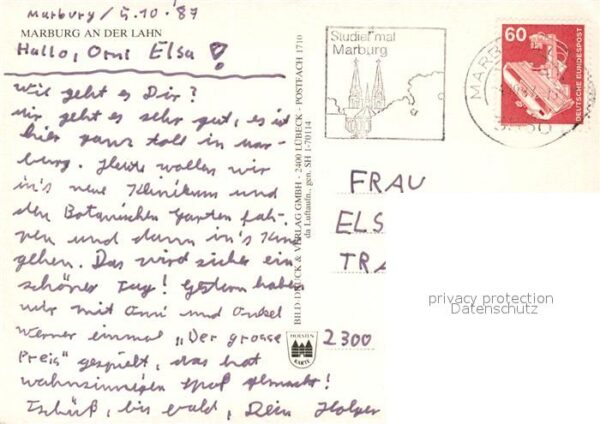 Marburg / 5.10.87
MARBURG AN DER LAHN
Hallo, Omi Elsa!
Wie geht es Dir?
Mir geht es sehr gut, es ist
hier ganz toll in Mar-
burg. Heute wollen wir
in's neue Klinikum und
den Botanischen Garten fah-
ren und dann in's Kino
gehen. Das wird sicher ein
schöner Tag! Gestern haben
wir mit Omi und Onkel
Werner einmal „Der grosse
Preis" gespielt, das hat
wahnsinnigen Spaß gemacht!
Tschüß, bis bald, Dein Holger
BILD-DRUCK & VERLAG GMBH · 2400 LÜBECK · POSTFACH 1710
da Luftaufn., gen. SH 1-70114
HOLSTEN
KARTE
Marburg
60
DEUTSCHE BUNDESPOST
FRAU
ELS
TRA
2300
privacy protection
Datenschutz